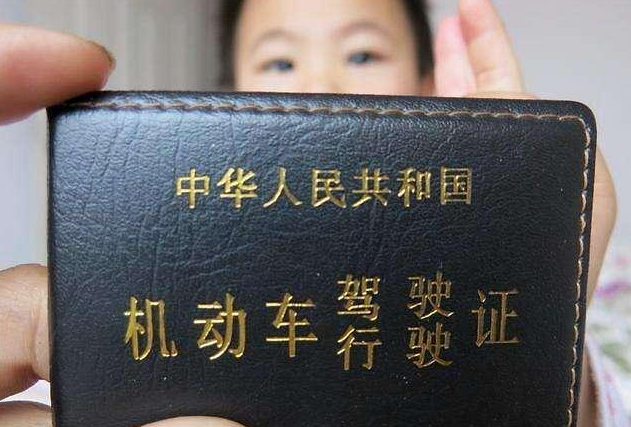 中华人民共和国
机动车驾驶行驶证